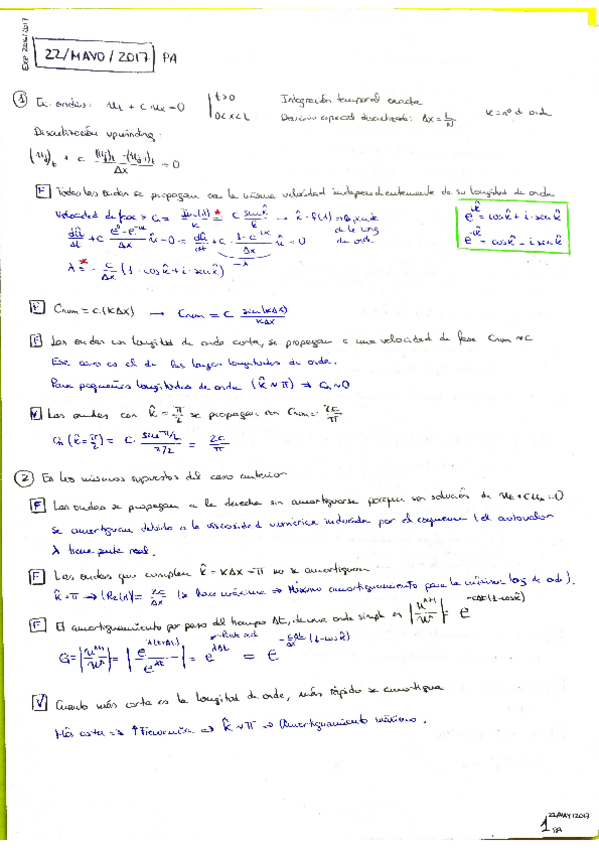 EXP 2016/2017
22/MAYO/2017 PA
① Ec. ondas: u_t + c·u_x = 0 | t>0 Integración temporal exacta
0<x<L Derivada espacial discretizada: Δx = L/N K = nº de onda
Discretización upwinding:
(u_j)_t + c (u_j)_t - (u_{j-1})_t / Δx = 0
F Todas las ondas se propagan con la misma velocidad independientemente de su longitud de onda
Velocidad de fase → = c senk̂/k̂ → k̂ = f(λ) → Depende de la long de onda.
e^{ik̂} = cosk̂ + i·senk̂
e^{-ik̂} = cosk̂ - i·senk̂
dû/dt + c e^0 - e^{-ik̂}/Δx û = 0 → dû/dt + c· 1 - e^{-ik̂}/Δx û = 0
-λ
λ = - c/Δx (1 - cosk̂ + i·senk̂)
F Cnum = c·(KΔx) → Cnum = c sen(KΔx)/KΔx
F Las ondas con longitud de onda corta, se propagan a una velocidad de fase Cnum ≈ c
Ese caso es el de las largas longitudes de onda.
Para pequeñas longitudes de onda (k̂ ≈ π) ⇒ Cn ≈ 0
V Las ondas con k̂ = π/2 se propagan con Cnum = 2c/π
Cn (k̂=π/2) = c· sen π/2 / π/2 = 2c/π
② En los mismos supuestos del caso anterior
F Las ondas se propagan a la derecha sin amortiguarse porque son solución de u_t + cu_x = 0
Se amortiguan debido a la viscosidad numérica inducida por el esquema (el autovalor
λ tiene parte real.
F Las ondas que cumplen k̂ = KΔx = π no se amortiguan
k̂ = π → |Re(λ)| = 2c/Δx (Se hace máxima ⇒ Máximo amortiguamiento para la mínima long de onda).
F El amortiguamiento por paso del tiempo Δt, de una onda simple es |u^{n+1}/u^n| = e^{-cΔt(1-cosk̂)}
G = |u^{n+1}/u^n| = |e^{λ(t+Δt)}/e^{λt}| = e^{λΔt} = e^{-cΔt/Δx (1-cosk̂)}
Parte real
V Cuanto más corta es la longitud de onda, más rápido se amortigua
Más corta ⇒ ↑Frecuencia ⇒ k̂ ≈ π ⇒ Amortiguamiento máximo.
22/MAY/2017
1 PA